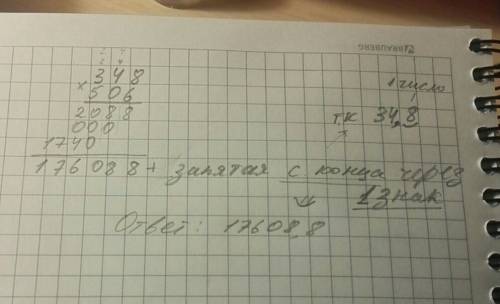 BRAUBERG
348
× 506
2088
000
1740
176088 + запятая с конца через
1 знак
1 число
т.к 34,8
Ответ: 17608,8